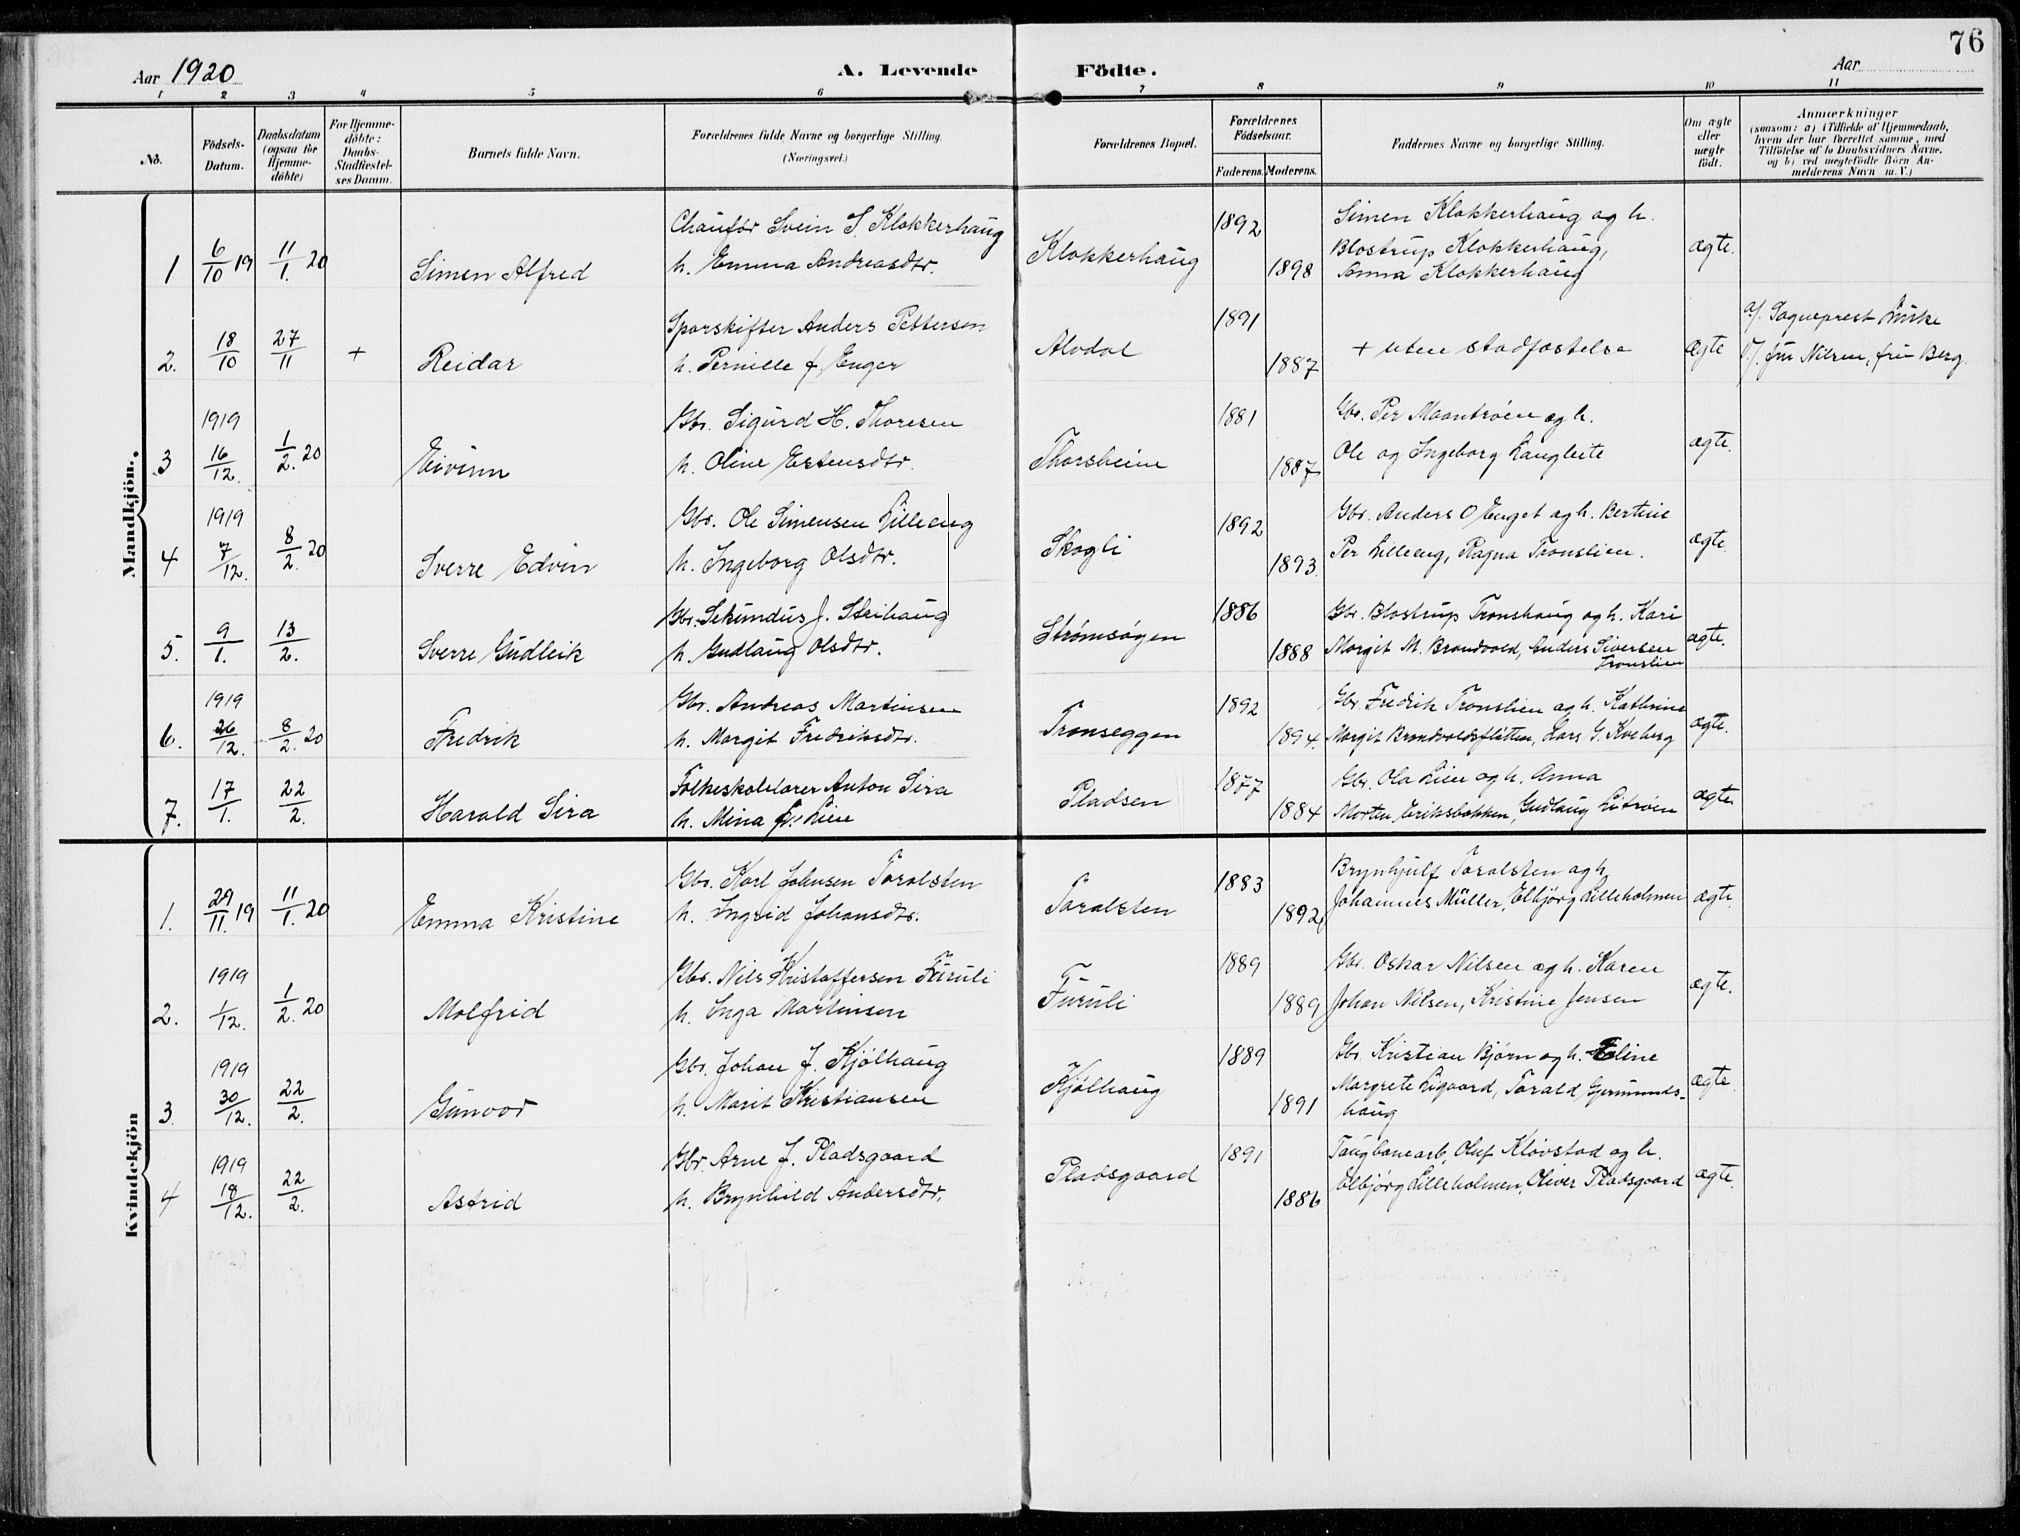 76
Aar 1920
A. Levende Födte.
Aar
1 2 3 4 5 6 7 8 9 10 11
No.
Födsels-Datum.
Daabsdatum (ogsaa for Hjemme-döbte)
For Hjemme-döbte: Daabs-Stadfæstel-ses Datum.
Barnets fulde Navn.
Forældrenes fulde Navne og borgerlige Stilling. (Næringsvei.)
Forældrenes Bopæl.
Forældrenes Födselsaar.
Faderens. Moderens.
Faddernes Navne og borgerlige Stilling.
Om ægte eller uægte født.
Anmærkninger
(saasom: a) i Tilfælde af Hjemmedaab, hvem der har forrettet samme, med Tilföielse af to Daabsvidners Navne, og b) ved uægtefödte Börn Anmelderens Navn m. V.)
Mandkjön.
1 6/10 19 11/1. 20 Simen Alfred
Chauför Svein S. Klokkerhaug
h. Emma Andreasdtr.
Klokkerhaug 1892 1898
Simen Klokkerhaug og h.
Blostrup Klokkerhaug,
Anna Klokkerhaug
ægte.
2. 18/10 27/11 + Reidar
Sporskifter Anders Pettersen
h. Pernille f. Enger
Alvdal 1891 1887
+ uten stadfæstelse
ægte
a/. Sogneprest
V/. fru Nilsen, fru Berg.
3 1919 16/12. 1/2. 20 Eivinn
Gbr. Sigurd H. Thoresen
h. Oline Estensdtr.
Thorsheim 1881 1887
Gbr. Per Moantrøen og h.
Ole og Ingeborg Langleite
ægte.
4 1919 7/12. 8/2. 20 Sverre Edvin
Gbr. Ole Simensen Lilleeng
h. Ingeborg Olsdtr.
Skogli 1892 1893.
Gbr. Anders O Enget og h. Bertine
Per Lilleeng, Ragna Tronslien.
ægte.
5. 9/1. 13/2. Sverre Gudleik
Gbr. Sekundus J. Steihaug
h. Gudlaug Olsdtr.
Strømsøgen 1886 1888
Gbr. Blostrup Tronshaug og h. Kari
Margit M. Brandvold, Anders Siversen
Tronslien
ægte.
6. 1919 26/12. 8/2. 20 Fredrik
Gbr. Andreas Martinsen
h. Margit Fredriksdtr.
Tronseggen 1892 1894.
Gbr. Fredrik Tronslien og h. Kathrine
Margit Brandvoldsfløtten, Lars G. Kveberg
ægte.
7. 17/1. 22/2. Harald Sira
Folkeskolelærer Anton Sira
h. Mina f. Lien
Pladsen 1877 1884
Gbr. Ola Lien og h. Anna
Morten Eriksbakken, Gudlaug Litrøen
ægte.
Kvindekjön
1. 29/11. 19 11/1. 20 Emma Kristine
Gbr. Karl Johnsen Toralsten
h. Ingrid Johansdtr.
Toralsten 1883 1892
Brynhjulf Toralsten og h.
Johannes Müller, Elbjørg Lilleholmen
ægte
2. 1919 1/12. 1/2. 20 Molfrid
Gbr. Nils Kristoffersen Furuli
h. Inga Martinsen
Furuli 1889 1889
Gbr. Oskar Nilsen og h. Karen
Johan Nilsen, Kristine Jensen
ægte.
3. 1919 30/12. 22/2. Gunvor
Gbr. Johan J. Kjølhaug
h. Marit Kristiansen
Kjølhaug 1889 1891
Gbr. Kristian Bjørn og h. Eline
Margrete Ligaard, Torald Gjermunds-
haug
ægte.
4 1919 18/12. 22/2. Astrid
Gbr. Arne J. Pladsgaard
h. Brynhild Andersdtr.
Pladsgaard 1891 1886
Taugbanearb. Oluf Kløvstad og h.
Elbjørg Lilleholmen, Oliver Pladsgaard
ægte.